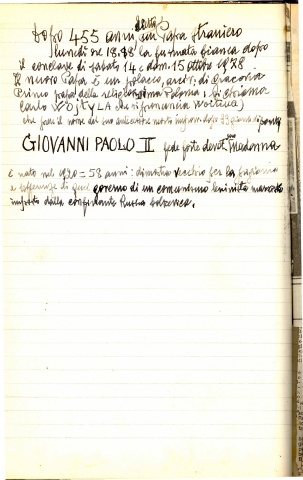 Dopo 455 anni, un Papa straniero
lunedì ore 18.18 la fumata bianca dopo
il conclave di sabato 14 e dom. 15 ottobre 1978
Il nuovo Papa è un polacco, arciv. di Cracovia
Primo della Polonia, si chiama
Carlo WOJTYLA che si pronuncia
che prese il nome del suo antecessore morto dopo 33 giorni di
GIOVANNI PAOLO II fede forte devot. Madonna
è nato nel 1920 = 58 anni: vecchio per la
e sofferenze di quel governo di un comunismo leninista marxista
imposto dalla confinante Russia